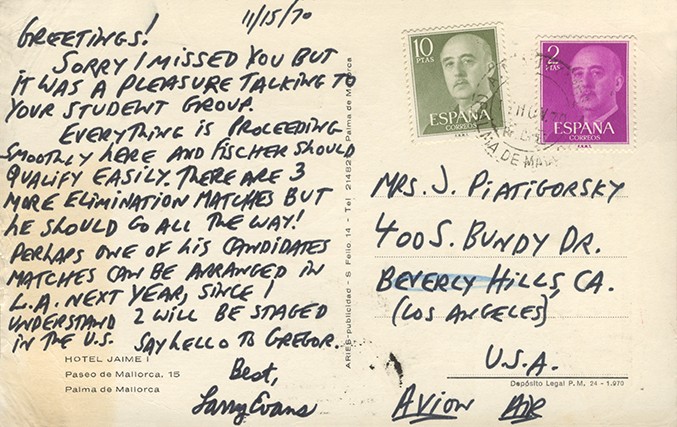 11/15/70
GREETINGS!
SORRY I MISSED YOU BUT
IT WAS A PLEASURE TALKING TO
YOUR STUDENT GROUP.
EVERYTHING IS PROCEEDING
SMOOTHLY HERE AND FISCHER SHOULD
QUALIFY EASILY. THERE ARE 3
MORE ELIMINATION MATCHES BUT
HE SHOULD GO ALL THE WAY!
PERHAPS ONE OF HIS CANDIDATES
MATCHES CAN BE ARRANGED IN
L.A. NEXT YEAR, SINCE I
UNDERSTAND 2 WILL BE STAGED
IN THE U.S. SAY HELLO TO GREGOR.
Best,
Larry Evans
HOTEL JAIME I
Paseo de Mallorca, 15
Palma de Mallorca
ARIES-publicidad - S. Felio, 14 - Tel. 21482 Palma de Mallorca
10
PTAS
ESPAÑA
CORREOS
2
PTAS
ESPAÑA
CORREOS
MA DE MA
MRS. J. PIATIGORSKY
400 S. BUNDY DR.
BEVERLY HILLS, CA.
(LOS ANGELES)
U.S.A.
Depósito Legal P.M. 24 - 1.970
AVION AIR